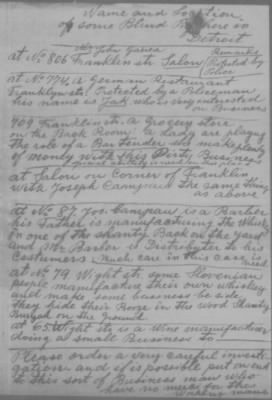 Name and Location
of some Blind        here in
Detroit
Mr John Yanca Remarks
at No. 806 Franklin st. Salon Protected by
Police
at No. 774, a German Restaurant
Franklyn st. Protected by a Policeman
his name is Jack who is very interested
on Business
709 Franklin st. a Grocery store
on the Back Room a lady are playng
the role of a Bar Tender she make plenty
of money with this Dirty Business
at Salon on Corner of Franklin
with Joseph Campaw the same thing
as above
at No 87 Jos. Campaw is a Barber
his Father is manufacturing the Whisk
in one of the shanty Back on the Yard
and Mr Barber is Distributer to his
Costumers Much care in this case
at No. 79 Wight st. some Slovenian
people manufacture their own whiskey
and make some business be side
they hide their Booze in the wood Shanty
on the ground
at 65 Wight st. is a Wine manufacturer
doing a small Bussiness to
Please order a very careful investi-
gation and if is possible put an end
to this sort of Business man who
have no mercy for the